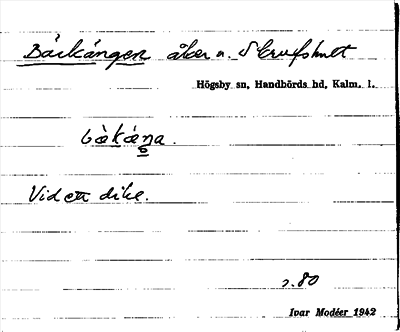 Bäckängen åker u. Skrufshult
Högsby sn, Handbörds hd, Kalm. l.
Vid ett dike.
s. 80
Ivar Modéer 1942